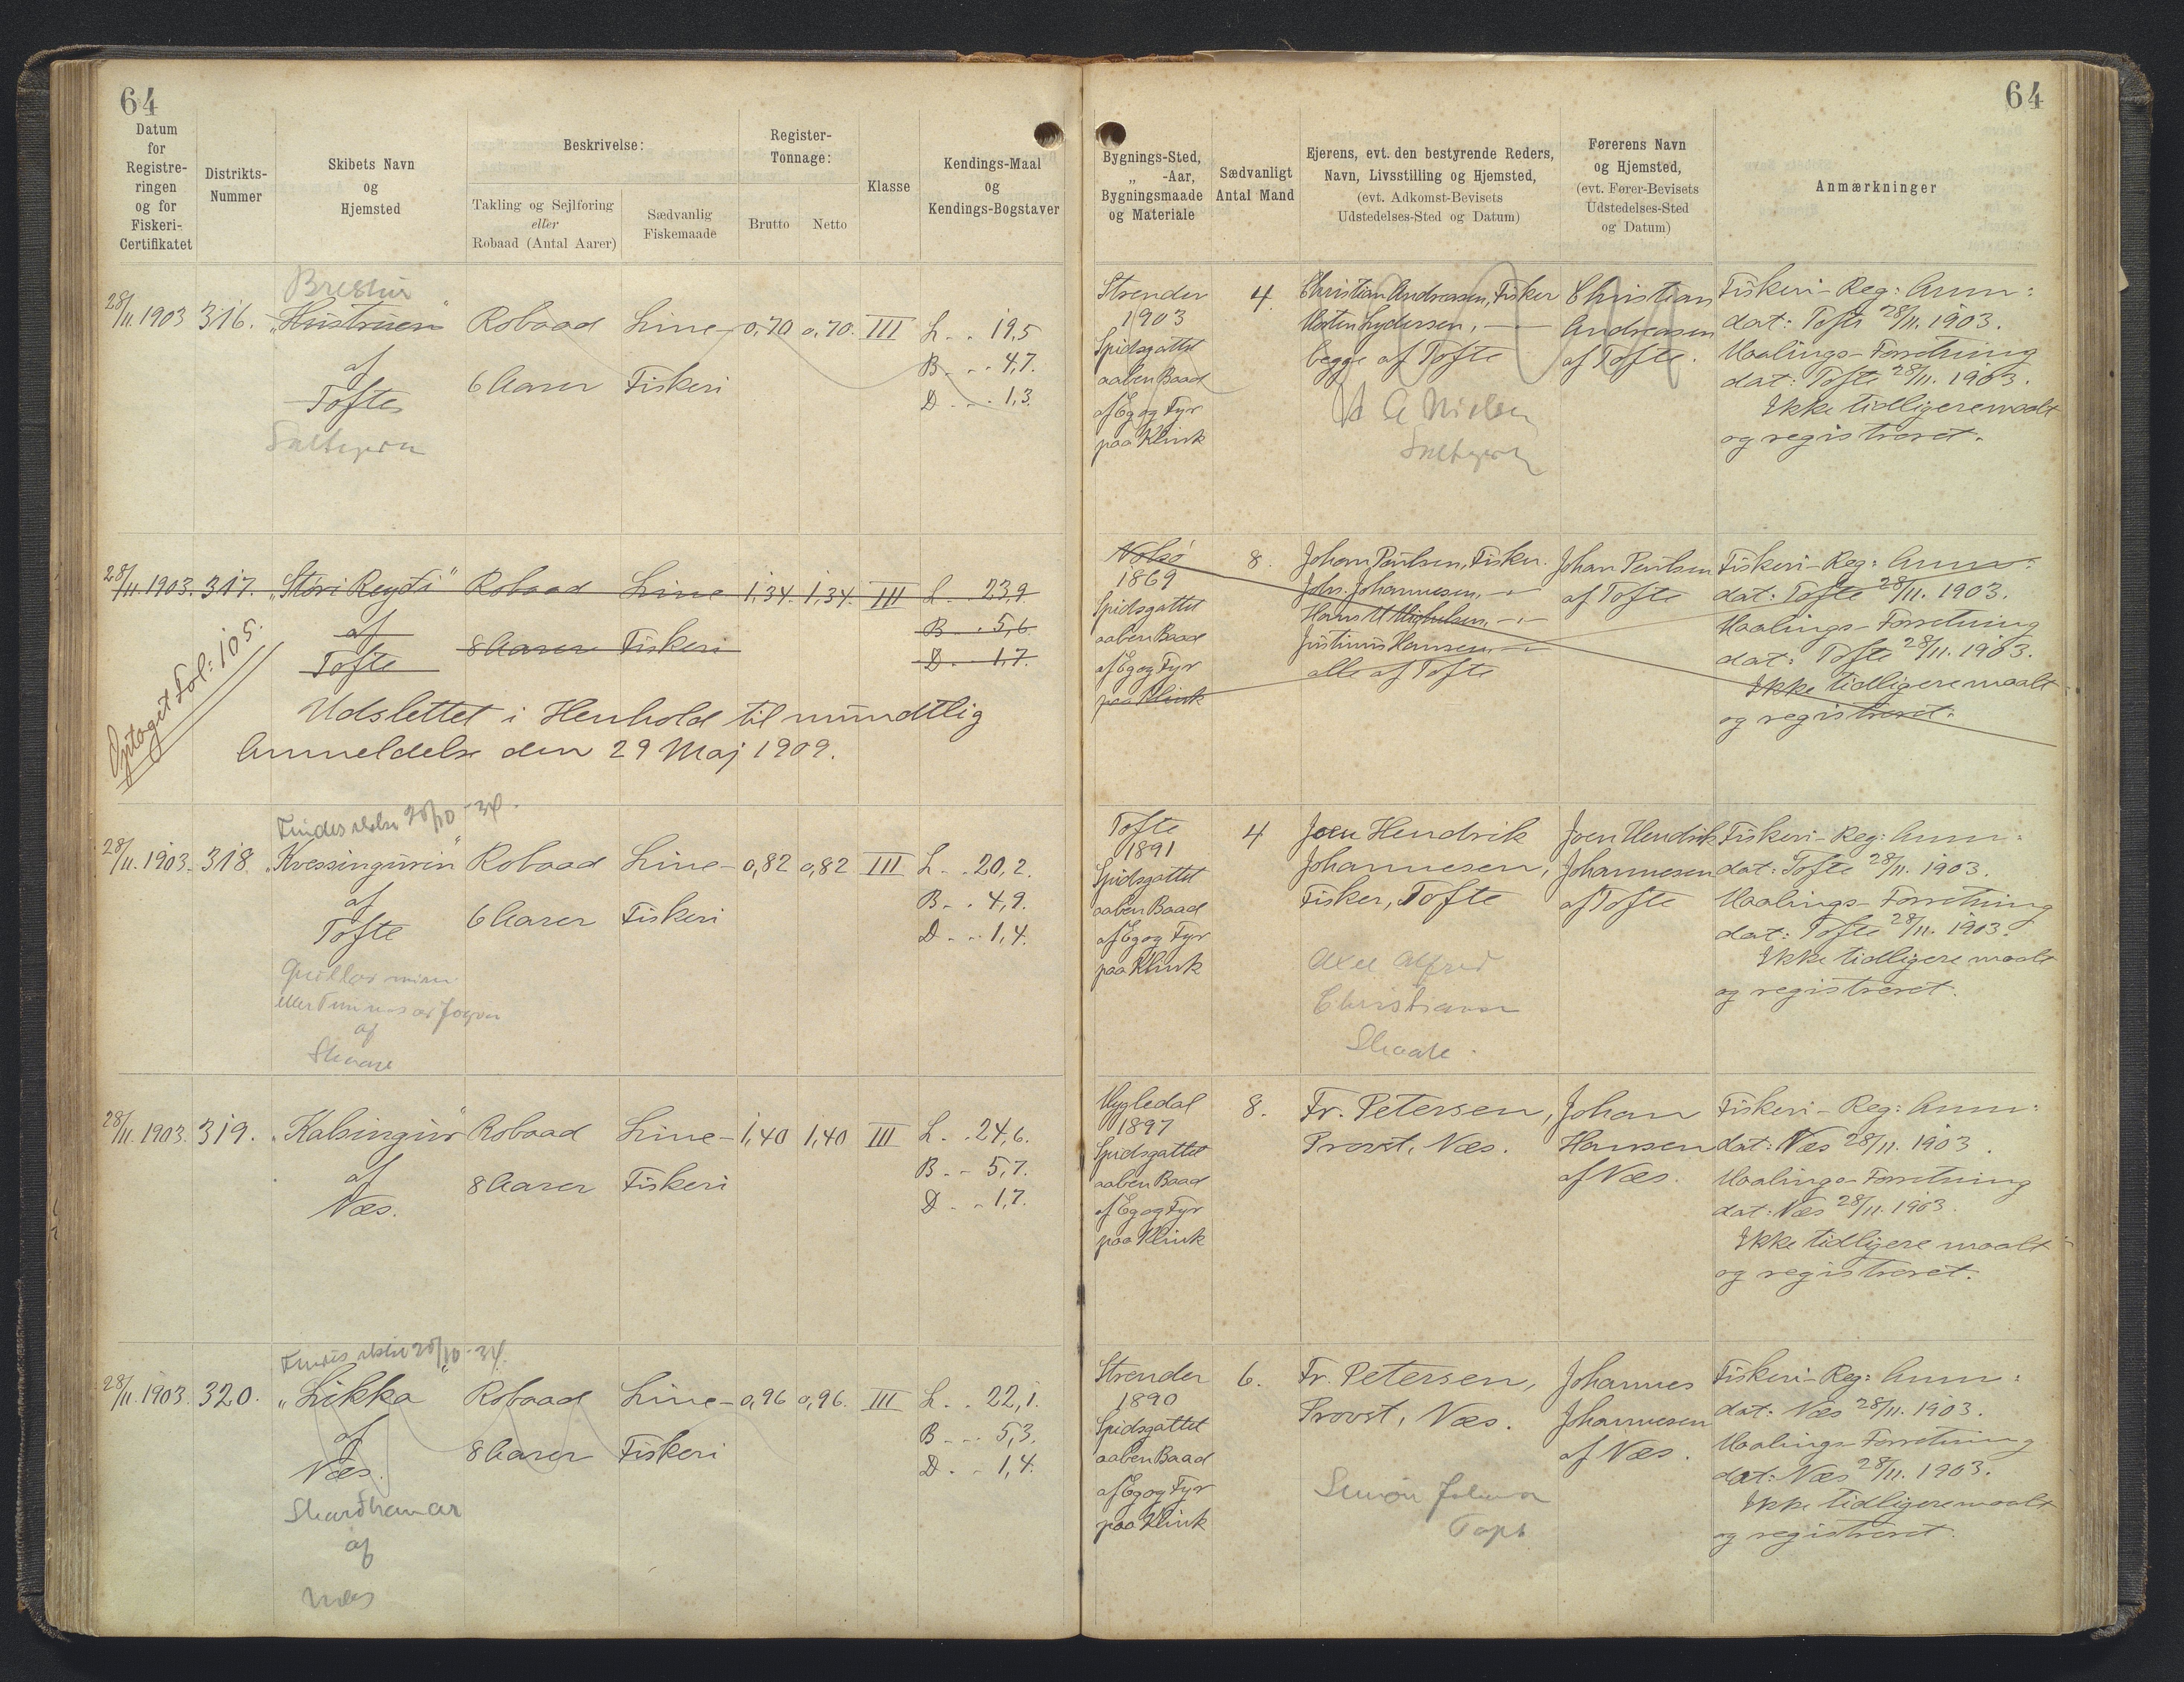 64
64
Datum for Registreringen og for Fiskeri-Certifikatet
Distrikts-Nummer
Skibets Navn og Hjemsted
Beskrivelse:
Takling og Sejlføring eller Robaad (Antal Aarer)
Sædvanlig Fiskemaade
Register-Tonnage:
Brutto
Netto
Klasse
Kendings-Maal og Kendings-Bogstaver
Bygnings-Sted, „ -Aar, Bygningsmaade og Materiale
Sædvanligt Antal Mand
Ejerens, evt. den bestyrende Reders, Navn, Livsstilling og Hjemsted, (evt. Adkomst-Bevisets Udstedelses-Sted og Datum)
Førerens Navn og Hjemsted, (evt. Fører-Bevisets Udstedelses-Sted og Datum)
Anmærkninger
28/11. 1903 316. „Hustruen" Robaad Line- 0,70 0,70. III L. . 19,5
af
Tofte
6 Aarer Fiskeri
B. . . 4,7.
D. . . 1,3.
Strender
1903
Spidsgattet
aaben Baad
af Eg og Fyr
paa Klink
4.
Christian Andreasen, Fisker
Morten Lydersen, -"-
begge af Tofte
Christian
Andreasen
af Tofte.
Fiskeri-Reg: Anm:
dat: Tofte 28/11. 1903.
Maalings-Forretning
dat: Tofte 28/11. 1903.
Ikke tidligere maalt
og registreret.
28/11. 1903. 317. „Stóri Reyði" Robaad Line 1,34. 1,34. III L. 23,9
af
Tofte
8 Aarer Fiskeri
B. . 5,6.
D. . 1,7.
Udslettet i Henhold til mundtlig
Anmeldelse den 29 Maj 1909.
Optaget Fol: 105.
Nolsø
1869
Spidsgattet
aaben Baad
af Eg og Fyr
paa Klink
8.
Johan Poulsen, Fisker.
Johs. Johannesen, -"-
Justinus Hansen, -"-
alle af Tofte
Johan Poulsen
af Tofte
Fiskeri-Reg: Anm:
dat: Tofte 28/11. 1903.
Maalings-Forretning
dat: Tofte 28/11. 1903.
Ikke tidligere maalt
og registreret.
Findes ikke 28/10 -34.
28/11. 1903. 318. „Kvessingurin" Robaad Line- 0,82 0,82 III L. . 20,2.
af
Tofte
6 Aarer Fiskeri
B. . 4,9.
D. . . 1,4.
af
Skaare
Tofte
1891
Spidsgattet
aaben Baad
af Eg og Fyr
paa Klink
4
Joen Hendrik
Johannesen,
Fisker, Tofte
Axel Alfred
Skaale.
Joen Hendrik
Johannesen
af Tofte
Fiskeri-Reg: Anm:
dat: Tofte 28/11. 1903.
Maalings-Forretning
dat: Tofte 28/11. 1903.
Ikke tidligere maalt
og registreret.
28/11. 1903. 319. „Kalsingur" Robaad Line- 1,40 1,40 III L. . 24,6.
af
Næs.
8 Aarer Fiskeri
B. . 5,7.
D. . . 1,7.
Mygledal
1897
Spidsgattet
aaben Baad
af Eg og Fyr
paa Klink
8.
Fr. Petersen,
Provst, Næs.
Johan
Hansen
af Næs.
Fiskeri-Reg: Anm:
dat: Næs 28/11. 1903.
Maalings-Forretning
dat: Næs 28/11. 1903.
Ikke tidligere maalt
og registreret.
Findes ikke 28/10 -34.
28/11. 1903. 320. „Likka" Robaad Line- 0,96 0,96. III L. . 22,1.
af
Næs.
8 Aarer Fiskeri
B. . . 5,3.
D. . 1,4.
af
Næs
Strender
1890
Spidsgattet
aaben Baad
af Eg og Fyr
paa Klink
6.
Fr. Petersen,
Provst, Næs.
Johannes
Johannesen
af Næs.
Fiskeri-Reg: Anm:
dat: Næs 28/11. 1903.
Maalings-Forretning
dat: Næs 28/11. 1903.
Ikke tidligere maalt
og registreret.